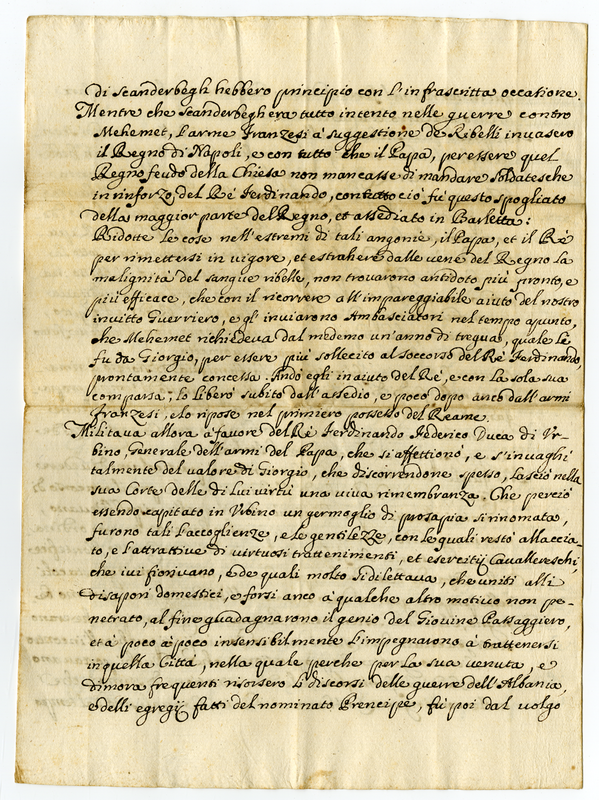 di Scanderbegh hebbero principio con l'infrascritta occatione.
Mentre che Scanderbegh era tutto intento nelle guerre contro
Mehemet, l'arme Franzesi à suggestione de Ribelli invasero
il Regno di Napoli, e con tutto che il Papa, per essere quel
Regno feudo della Chiesa non mancasse di mandare Soldatesche
in rinforzo del Ré Ferdinando, contuttociò fù questo spogliato
della maggior parte del Regno, et assediato in Barletta:
Ridotte le cose nell'estremi di tali angonie, il Papa, et il Ré
per rimettersi in vigore, et estrahere dalle vene del Regno la
malignità del sangue ribelle, non trovarono antidoto più pronto, e
più efficace, che con il ricorrere all'impareggiabile aiuto del nostro
invitto Guerriero, e gl'inviarono Ambasciatori nel tempo apunto,
che Mehemet richiedeva dal medemo un'anno di tregua, quale le
fu da Giorgio, per essere più sollecito al soccorso del Ré Ferdinando,
prontamente concessa. Andò egli in aiuto del Ré, e con la sola sua
comparsa, lo liberò subito dall'assedio, e poco dopo anco dall'armi
Franzesi, e lo ripose nel primiero possesso del Reame.
Militava allora à favore del Ré Ferdinando Federico Duca di Ur-
bino, Generale dell'armi del Papa, che si affettionò, e s'invaghì
talmente del valore di Giorgio, che discorrendone spesso, lasciò nella
sua Corte delle di lui virtù una viva rimembranza. Che perciò
essendo capitato in Urbino un germoglio di prosapia sì rinomata,
furono tali l'accoglienze, e le gentilezze, con le quali restò allaccia-
to, e l'attrattive di virtuosi trattenimenti, et esercitij Cavallereschi,
che ivi fiorivano, e de quali molto si dilettava, che uniti alli
disapori domestici, e forsi anco à qualche altro motivo non pe-
netrato, al fine guadagnarono il genio del Giovine Passaggiero,
et à poco à poco insensibilmente l'impegnarono à trattenersi
in quella Città, nella quale perche per la sua venuta, e
dimora frequenti risorsero li discorsi delle guerre dell'Albania,
e delli egregij fatti del nominato Prencipe, fù poi dal volgo